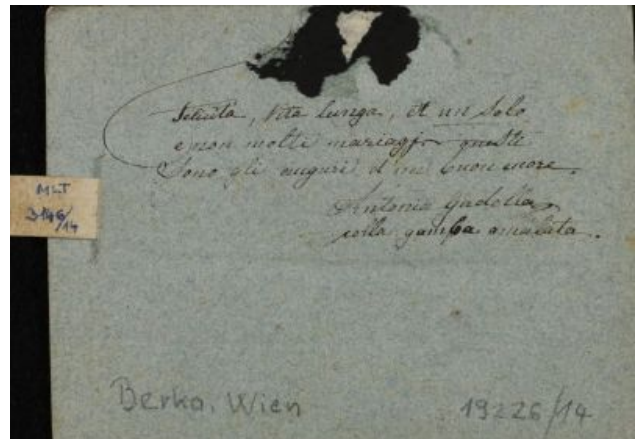 Felicità, Vita lunga, et un Solo
e non molti mariaggi questi
Sono gli auguri d'un buon cuore.
Antonia Gadolla
colla gamba amalata.
MLT
3146/14
Berka, Wien
19226/14